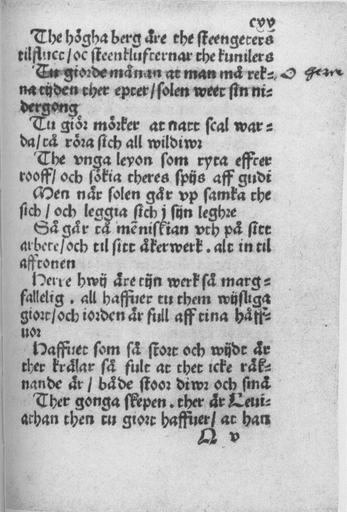 cxv
The högha berg äre the steengeters
tilfluct/oc steenklyffternar the kunilers
Tu giorde månan at man må rek-
na tijden ther epter/solen weet sin ni-
dergong
Tu giör mörker at natt scal war-
da/tå röra sich all wildiwr
The vnga leyon som ryta effter
rooff/och sökia theres spijs aff gudi
Men när solen går vp samka the
sich/och leggia sich j sijn leghre
Så går tå mēniskian vth på sitt
arbete/och til sitt åkerwerk. alt in til
afftonen
Herre hwij äre tijn werk så marg-
fallelig. all haffuer tu them wijsliga
giort/och iorden är full aff tina håff-
uor
Haffuet som så stort och wijdt är
ther krälar så fult at thet icke räk-
nande är/både stoor diwr och små
Ther gonga skepen. ther är Leui-
athan then tu giort haffuer/at han
v